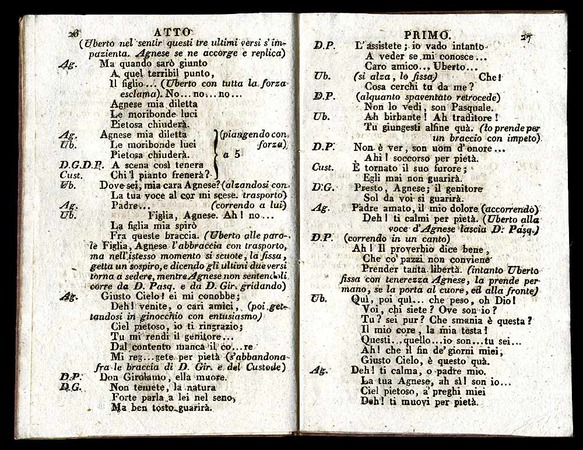 28 ATTO
(Uberto nel sentir questi tre ultimi versi s'im-
pazienta. Agnese se ne accorge e replica)
Ag. Ma quando sarò giunto
A quel terribil punto,
Il figlio... (Uberto con tutta la forza
esclama). No...no...no...
Agnese mia diletta
Le moribonde luci
Pietosa chiuderà.
Ag. Agnese mia diletta (piangendo con
Ub. Le moribonde luci forza)
Pietosa chiuderà. a 5
D.G.D.P. A scena così tenera
Cust. Chi 'l pianto frenerà?
Ub. Dove sei, mia cara Agnese? (alzandosi con
La tua voce al cor mi scese. trasporto)
Ag. Padre... (correndo a lui)
Ub. Figlia, Agnese. Ah! no...
La figlia mia spirò
Fra queste braccia. (Uberto alle paro-
le Figlia, Agnese l'abbraccia con trasporto,
ma nell'istesso momento si scuote, la fissa,
getta un sospiro, e dicendo gli ultimi due versi
torna a sedere, mentre Agnese non sentendoli
corre da D. Pasq. e da D. Gir. gridando)
Ag. Giusto Cielo! ei mi conobbe;
Deh! venite, o cari amici, (poi get-
tandosi in ginocchio con entusiasmo)
Ciel pietoso, io ti ringrazio;
Tu mi rendi il genitore...
Dal contento manca il co...re
Mi reg...gete per pietà (s'abbandona
fra le braccia di D. Gir. e del Custode)
D.P. Don Girolamo, ella muore.
D.G. Non temete, la natura
Forte parla a lei nel seno,
Ma ben tosto guarirà.
PRIMO. 27
D.P. L'assistete; io vado intanto
A veder se mi conosce...
Caro amico... Uberto...
Ub. (si alza, lo fissa) Che!
Cosa cerchi tu da me?
D.P. (alquanto spaventato retrocede)
Non lo vedi, son Pasquale.
Ub. Ah birbante! Ah traditore!
Tu giungesti alfine quà. (lo prende per
un braccio con impeto)
D.P. Non è ver, son uom d'onore...
Ahi! soccorso per pietà.
Cust. È tornato il suo furore;
Egli mai non guarirà.
D.G. Presto, Agnese; il genitore
Sol da voi si guarirà.
Ag. Padre amato, il mio dolore (accorrendo)
Deh! ti calmi per pietà. (Uberto alla
voce d'Agnese lascia D. Pasq.)
D.P. (correndo in un canto)
Ah! Il proverbio dice bene,
Che co' pazzi non conviene
Prender tanta libertà. (intanto Uberto
fissa con tenerezza Agnese, la prende per
mano, se la porta al cuore, ed alla fronte)
Ub. Quì, poi quì... che peso, oh Dio!
Voi, chi siete? Ove son io?
Tu? sei pur? Che smania è questa?
Il mio core, la mia testa!
Questi...quello...io son...tu sei...
Ah! che il fin de' giorni miei,
Giusto Cielo, è questo quà.
Ag. Deh! ti calma, o padre mio.
La tua Agnese, ah sì! son io...
Ciel pietoso, a' preghi miei
Deh! ti muovi per pietà.